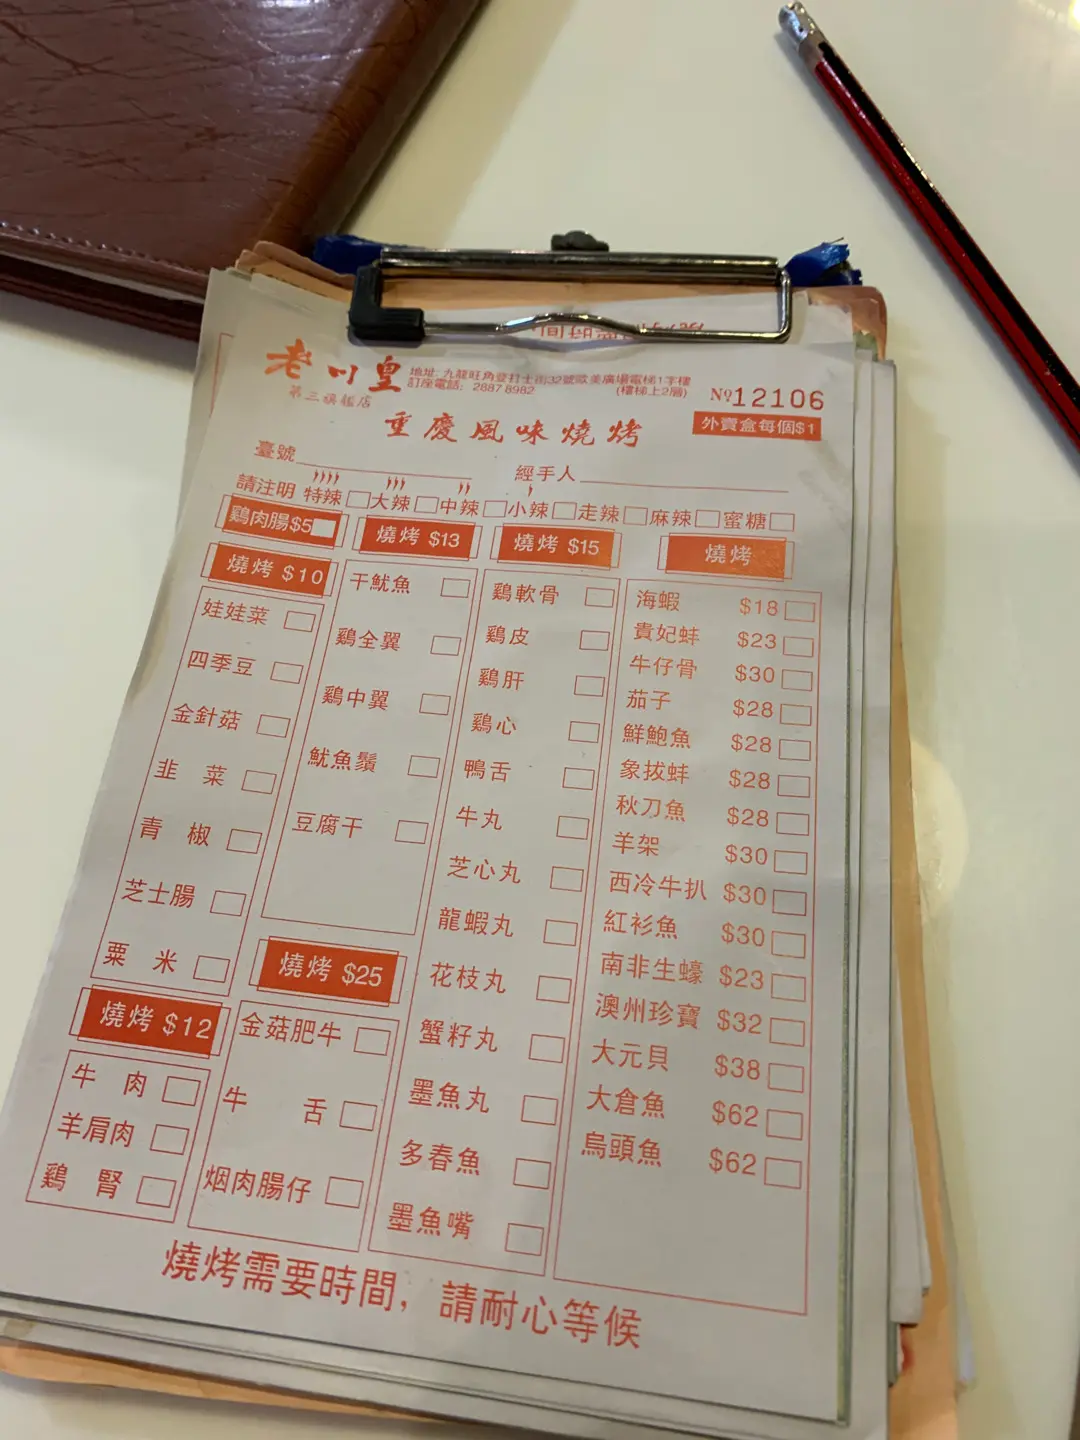 老川皇
第三旗艦店
地址: 九龍旺角登打士街32號歐美廣場電梯1字樓
訂座電話: 2887 8982 (樓梯上2層)
Nº12106
外賣盒每個$1
重慶風味燒烤
臺號
經手人
請注明 特辣 大辣 中辣 小辣 走辣 麻辣 蜜糖
鷄肉腸$5
燒烤 $10
娃娃菜
四季豆
金針菇
韭菜
青椒
芝士腸
粟米
燒烤 $12
牛肉
羊肩肉
鷄腎
燒烤 $13
干魷魚
鷄全翼
鷄中翼
魷魚鬚
豆腐干
燒烤 $25
金菇肥牛
牛舌
烟肉腸仔
燒烤 $15
鷄軟骨
鷄皮
鷄肝
鷄心
鴨舌
牛丸
芝心丸
龍蝦丸
花枝丸
蟹籽丸
墨魚丸
多春魚
墨魚嘴
燒烤
海蝦 $18
貴妃蚌 $23
牛仔骨 $30
茄子 $28
鮮鮑魚 $28
象拔蚌 $28
秋刀魚 $28
羊架 $30
西冷牛扒 $30
紅衫魚 $30
南非生蠔 $23
澳州珍寶 $32
大元貝 $38
大倉魚 $62
烏頭魚 $62
燒烤需要時間, 請耐心等候